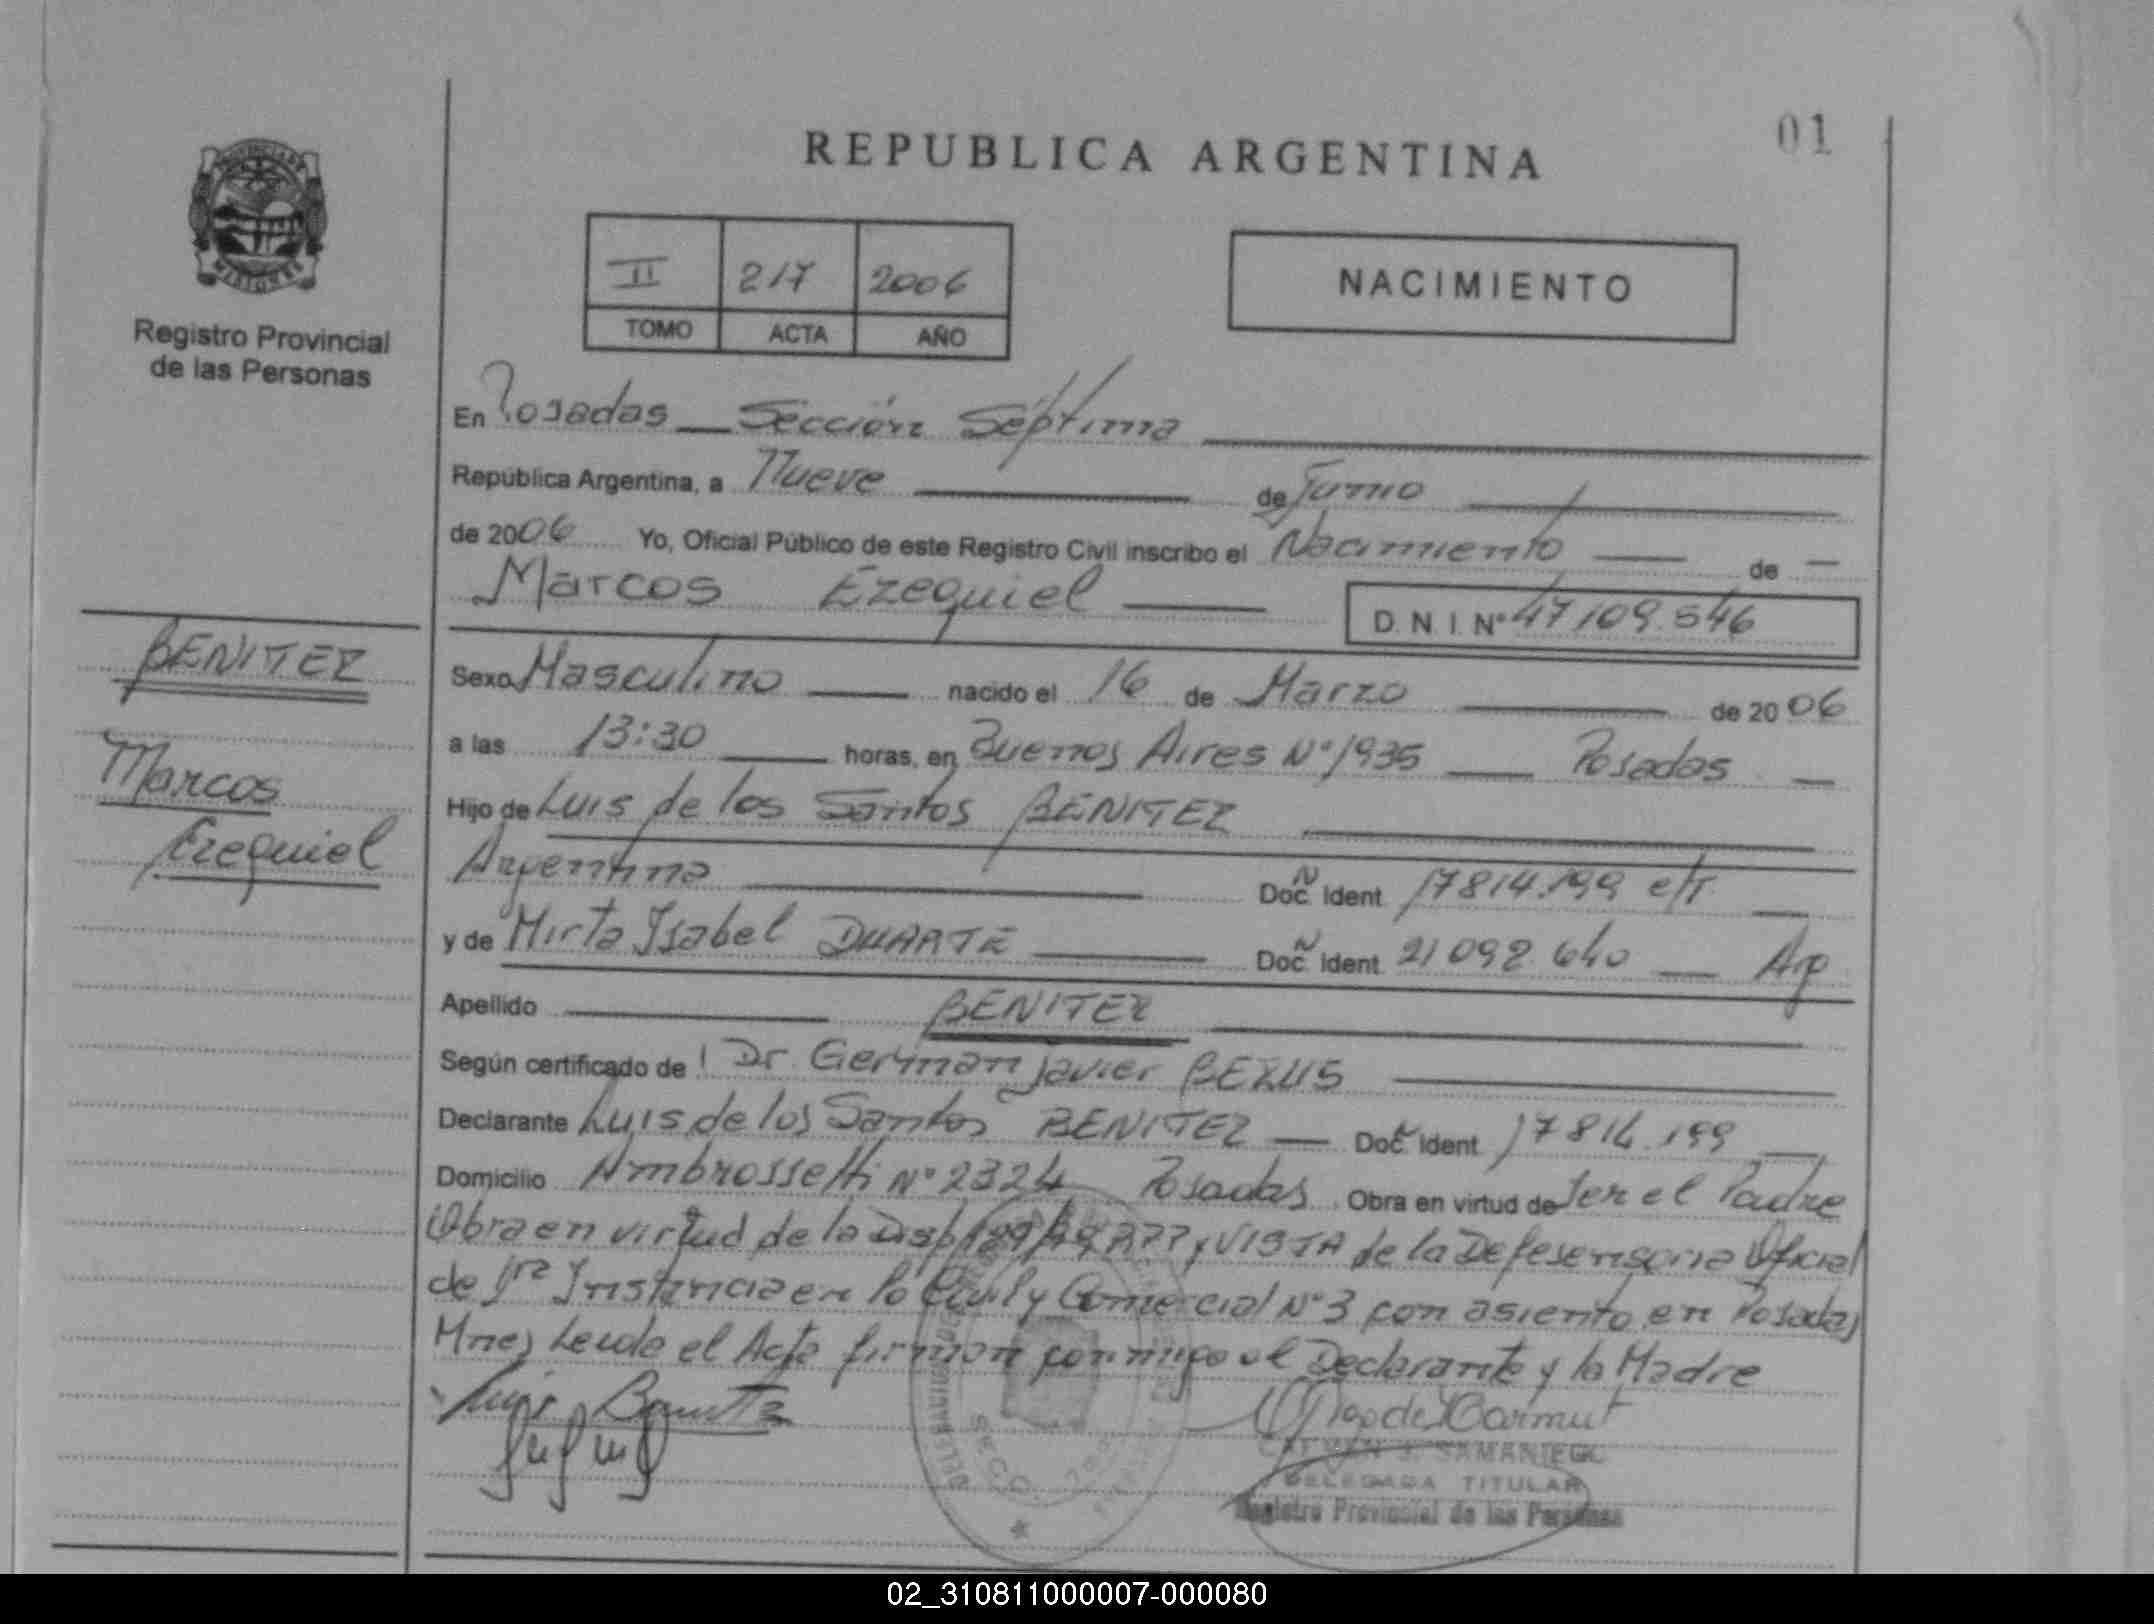 01
REPUBLICA ARGENTINA
PROVINCIA DE
MISIONES
Registro Provincial
de las Personas
II 217 2006
TOMO ACTA AÑO
NACIMIENTO
En Posadas Sección Séptima
República Argentina, a Nueve de Junio
de 2006 Yo, Oficial Público de este Registro Civil inscribo el Nacimiento de
Marcos Ezequiel D.N.I. Nº 47109.546
BENITEZ
Marcos
Ezequiel
Sexo Masculino nacido el 16 de Marzo de 2006
a las 13:30 horas, en Buenos Aires Nº 1935 Posadas
Hijo de Luis de los Santos BENITEZ
Argentina Doc. Ident. 17814.199 e/T
y de Mirta Isabel DUARTE Doc. Ident. 21092.640 Arg
Apellido BENITEZ
Según certificado de Dr. German Javier BEZUS
Declarante Luis de los Santos BENITEZ Doc. Ident. 17814.199
Domicilio Ambrossetti Nº 2324 Posadas Obra en virtud de Ser el Padre
Obra en virtud de la Disp VISTA de la Defesensoria Oficial
de 1ra Instancia en lo Civil y Comercial Nº 3 con asiento en Posadas
Mnes Leida el Acta firman conmigo el Declarante y la Madre
SAMANIEGO
DELEGADA TITULAR
Registro Provincial de las Personas
02_310811000007-000080